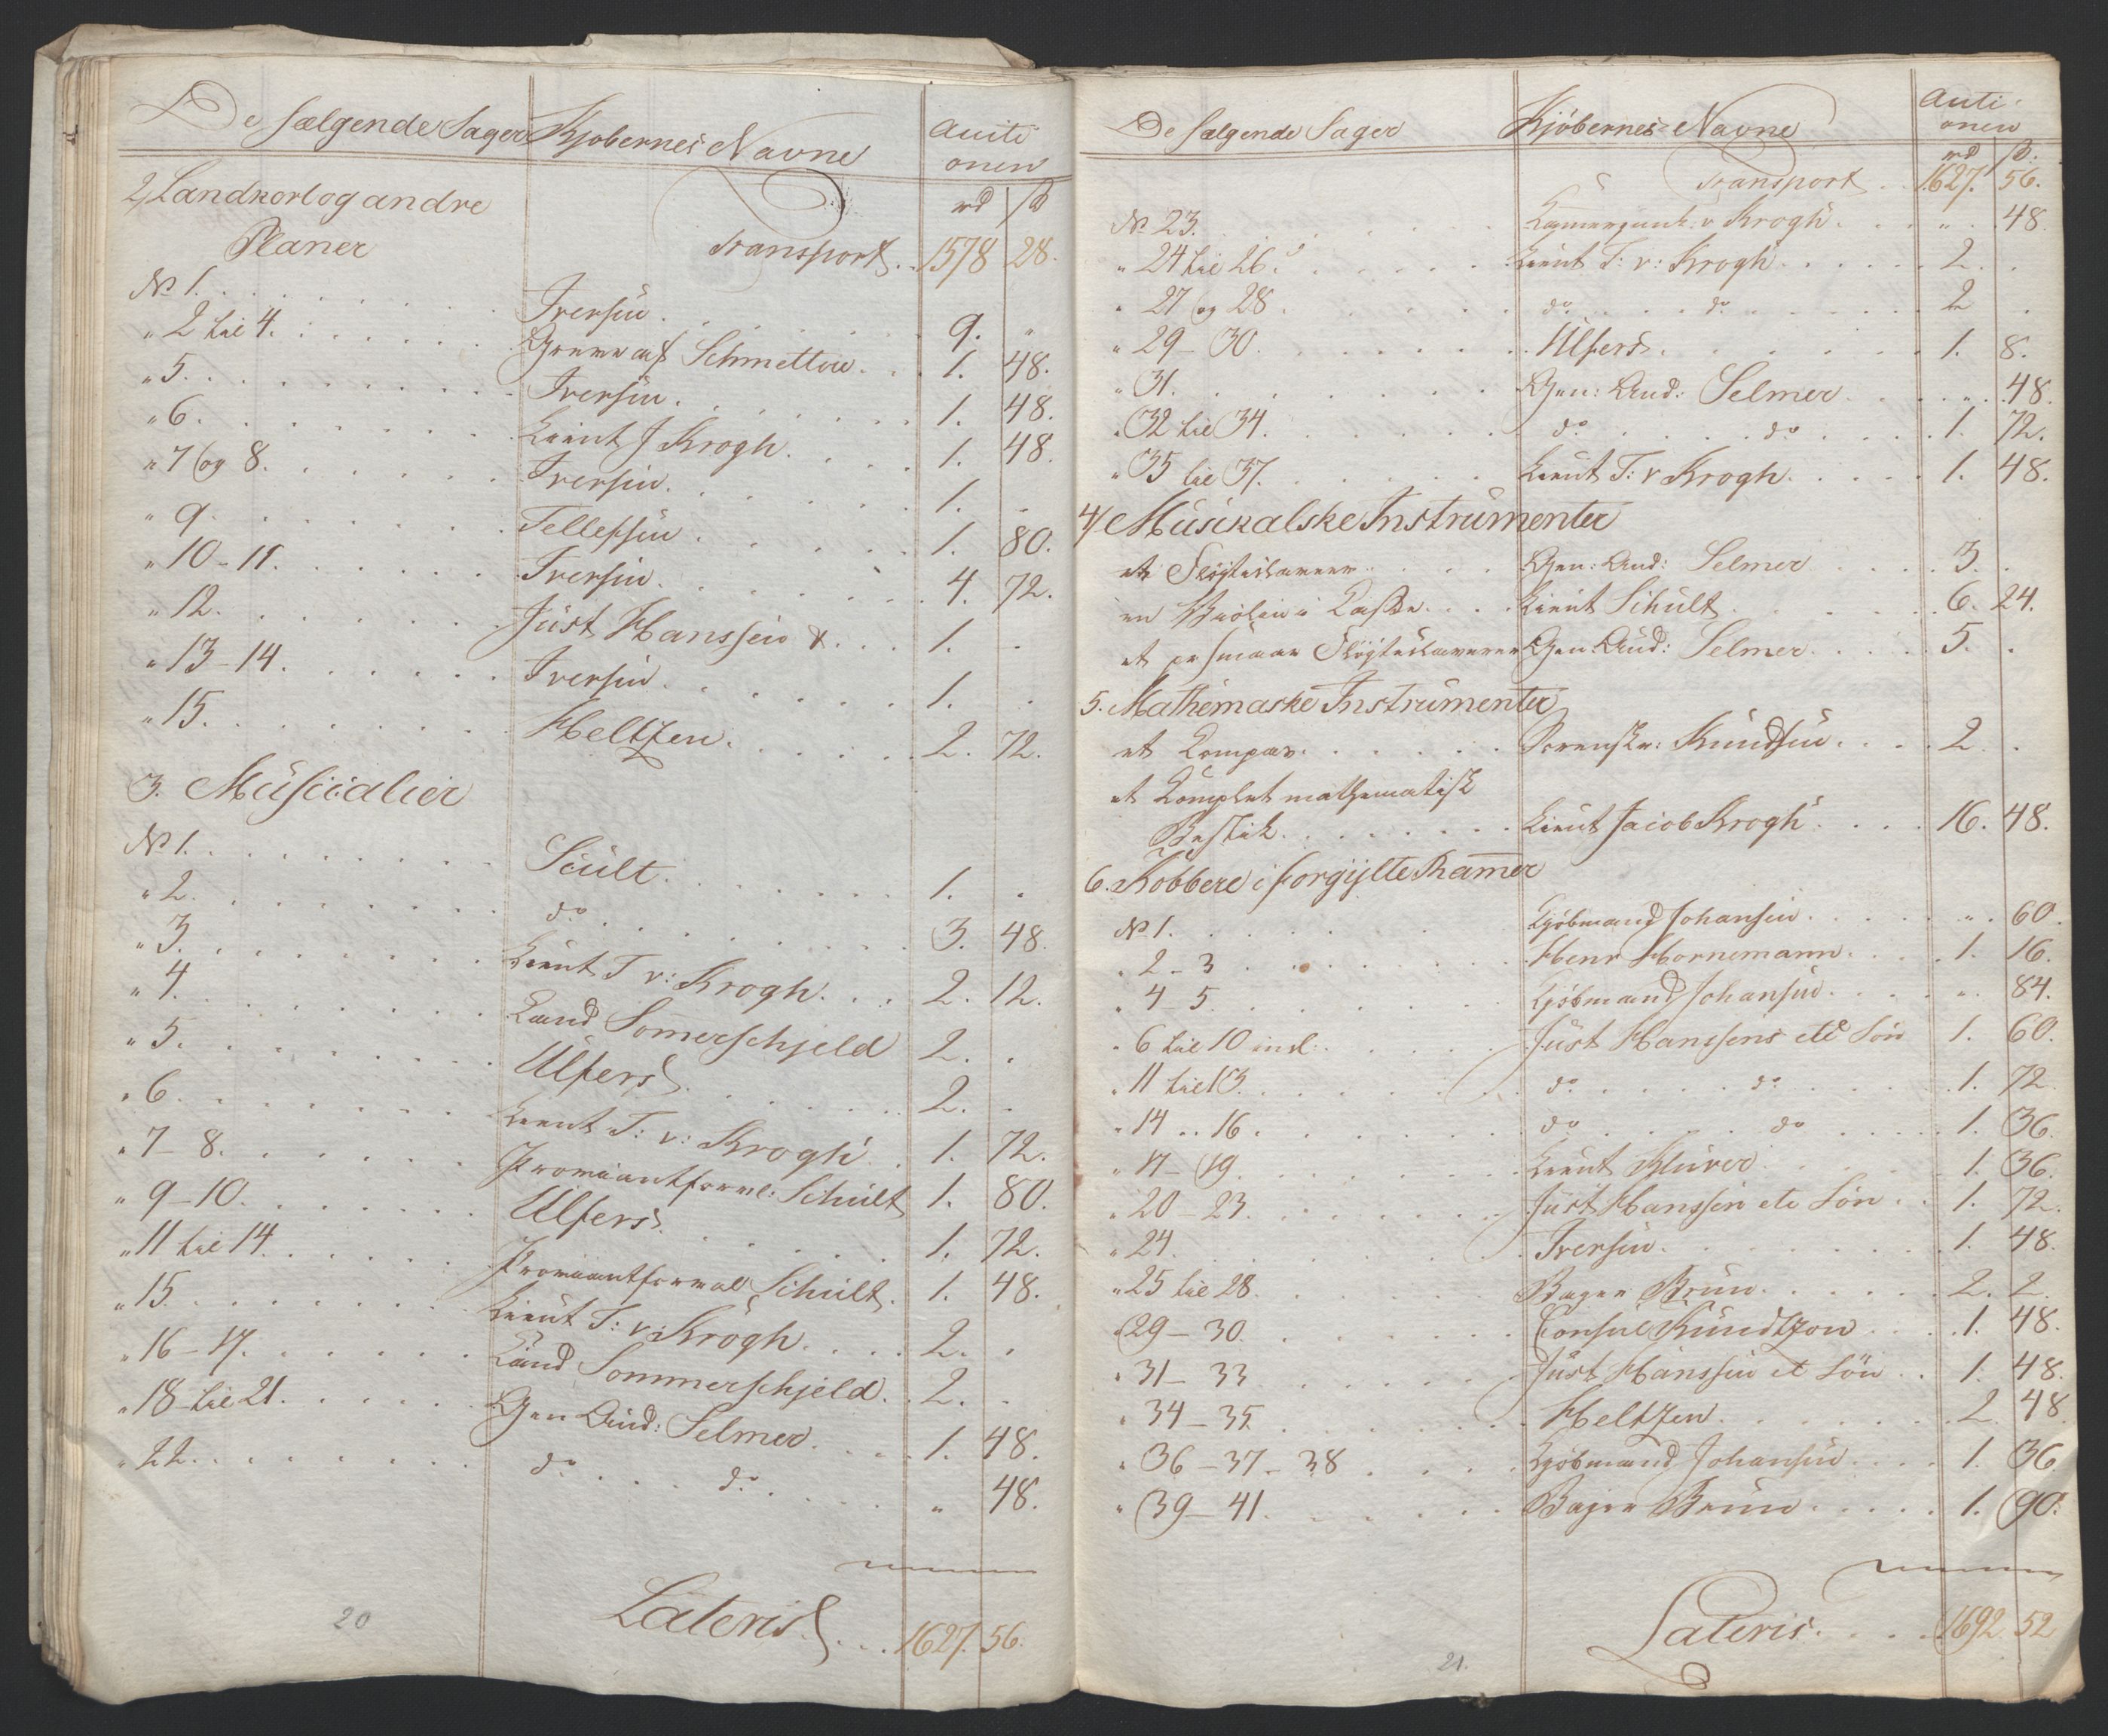 De sælgende Sager Kjøbernes Navne Aucti
onen
rd ß
2, Landkort og andre
Planer Transport . . 1578 28.
No 1. Iversen. 9. "
" 2 til 4. Greve af Schmettow. 1. 48.
" 5. Iversen. 1. 48.
" 6. Lieut J Krogh. 1. 48.
" 7 og 8. Iversen. 1. .
" 9. Tellefsen. 1. 80.
" 10 - 11. Iversen. 4. 72.
" 12. Just Hanssen & 1. .
" 13 - 14. Iversen. 1. .
" 15. Heltzen. 2. 72.
3. Musicalier
No 1. Scult. 1. .
" 2. do. 3. 48.
" 3. Lieut T v: Krogh. 2. 12.
" 4. Cand Somerschjeld 2. .
" 5. Ulfers. 2. .
" 6. Lieut T: v: Krogh. 1. 72.
" 7 - 8. Proviantforval: Schult 1. 80.
" 9 - 10. Ulfers. 1. 72.
" 11 til 14. Proviantforval Schult. 1. 48.
" 15. Lieut T: v: Krogh. 2. .
" 16 - 17. Cand Sommerschjeld. 2. .
" 18 til 21. Gen Aud: Selmer. 1. 48.
" 22. do. do. " 48.
Lateris. . . 1627. 56.
20
De sælgende Sager Kjöbernes Navne Aucti
onen
rd ß.
Transport . . 1627. 56.
No 23. Kamerjunk. v Krogh. " 48.
" 24 til 26. Lieut T: v: Krogh. 2. .
" 27 og 28. do. do. 2 .
" 29 - 30. Ulfers. 1. 8.
" 31. Gen: Aud: Selmer. " 48.
" 32 til 34. do. do. 1. 72.
" 35 til 37. Lieut T: v Krogh. 1. 48.
4/ Musikalske Instrumenter
et Fløjteclaveer. Gen: Aud: Selmer 3. .
en Violin i Casse. Lieut Schult. 6. 24.
et pr smaae Fløjteclaverer Gen: Aud: Selmer. 5. .
5. Mathemaske Instrumenter
et Compas. Sorenskr: Knudsen. 2. .
et Complet mathematisk
Bestik. Lieut Jacob Krogh. 16. 48.
6. Kobbere i forgylte Ramer
No 1. Kjøbmand Johansen. " 60.
" 2 - 3 Henr Hornemann. 1. 16.
" 4 - 5. Kjøbmand Johansen. " 84.
" 6 til 10 incl. Just Hanssens etc Søn 1. 60.
" 11 til 13. do. do. 1. 72
" 14 .. 16. do. do. 1. 36.
" 17 - 19. Lieut Kluver. 1. 36.
" 20 - 23. Just Hanssen etc Søn. 1. 72.
" 24. Iversen. 1. 48.
" 25 til 28. Bager Brun. 2. 2.
" 29 - 30. Consul Knudtzon 1. 48.
" 31 - 33 Just Hanssen et Søn 1. 48.
" 34 - 35 Heltzen. 2. 48
" 36 - 37 - 38 Kjøbmand Johansen. 1. 36
" 39 - 41. Bager Brun. 1. 90.
Lateris. 1692 52
21.